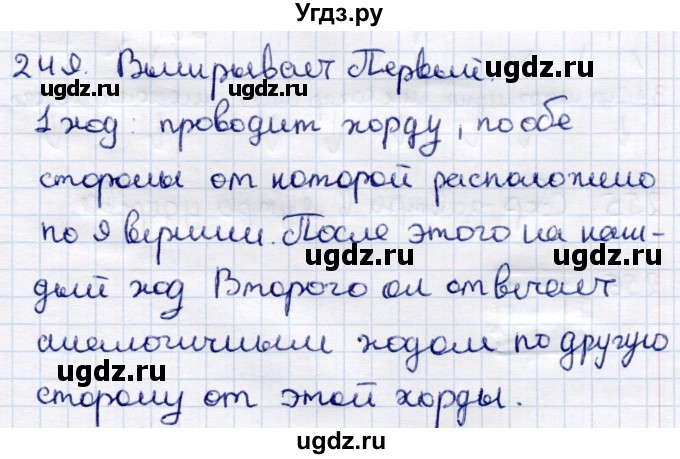 Угдз.ру
249. Выигрывает Первый.
ugdz.ru ugdz.ru
1 ход: проводит хорду, по обе
стороны от которой расположено
ugdz.ru ugdz.ru
по 9 вершин. После этого на каж-
ugdz.ru ugdz.ru
дый ход Второго он отвечает
аналогичным ходом по другую
ugdz.ru ugdz.ru
сторону от этой хорды.
ugdz.ru